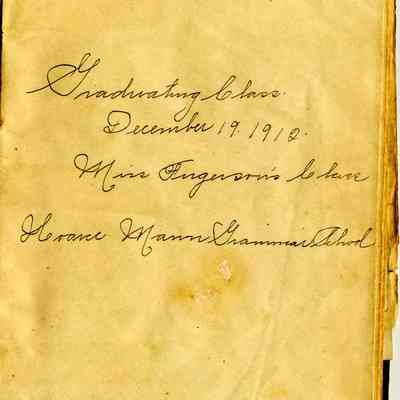 Graduating Class.
December 19. 1912.
Miss Fugerson's Class
Horace Mann Grammar School